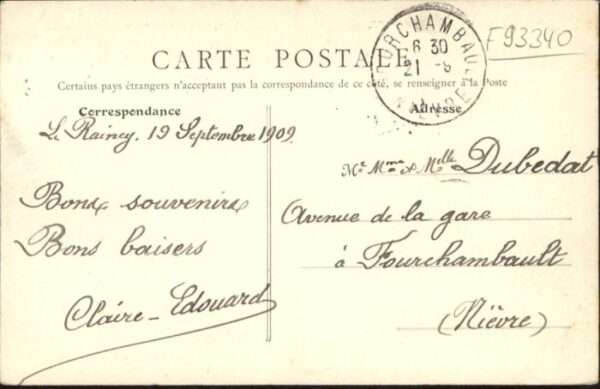 CARTE POSTALE
Certains pays étrangers n'acceptant pas la correspondance de ce côté, se renseigner à la Poste
FOURCHAMBAULT
6 30
21 -9
NIÈVRE
F93340
Correspondance
Le Raincy, 19 Septembre 1909
Bons souvenirs
Bons baisers
Claire-Edouard
Adresse
Mr Mme & Melle Dubedat
Avenue de la gare
à Fourchambault
(Nièvre)